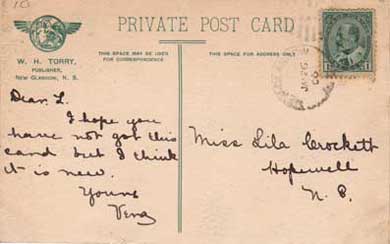 PRIVATE POST CARD
THIS SPACE MAY BE USED
FOR CORRESPONDENCE
THIS SPACE FOR ADDRESS ONLY
W. H. TORRY,
PUBLISHER,
NEW GLASGOW, N. S.
Dear L.
I hope you
have not got this
card but I think
it is new.
Yours
Vena
Miss Lila Crockett
Hopewell
N. S.